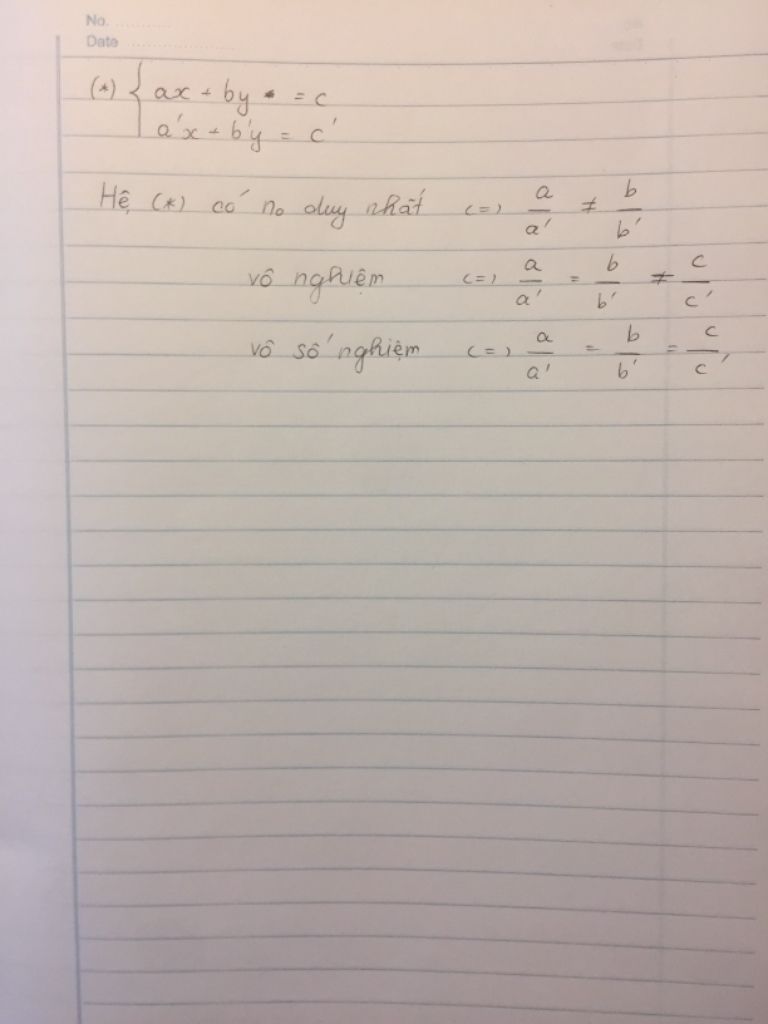 No. ............
Date ........................
(*) { ax + by = c
a'x + b'y = c'
Hệ (*) có no duy nhất <=> a/a' ≠ b/b'
vô nghiệm <=> a/a' = b/b' ≠ c/c'
vô số nghiệm <=> a/a' = b/b' = c/c'